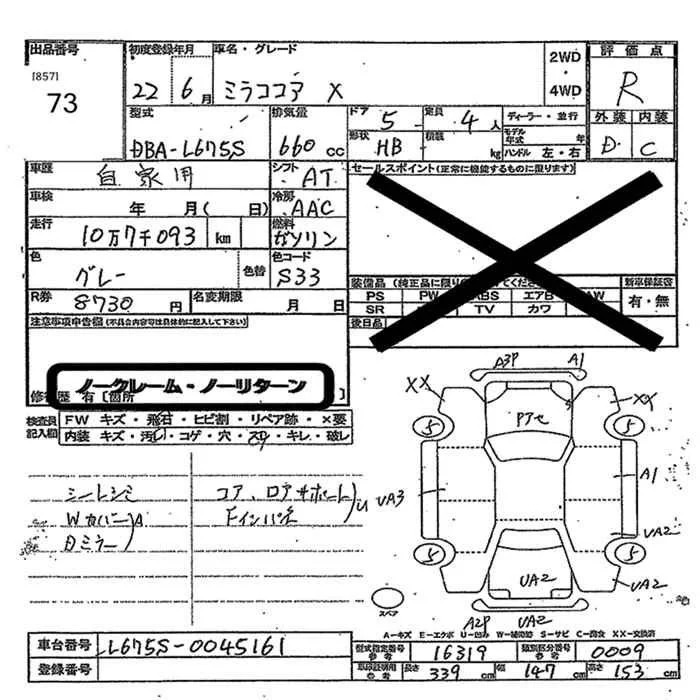 出品番号
[857]
73
初度登録年月
22 6月
車名・グレード
ミラココア X
2WD
・
4WD
評価点
R
外装 内装
D C
型式
DBA-L675S
排気量
660 cc
ドア 5
定員 4人
形状 HB
積載 kg
ディーラー・並行
モデル年式 年
ハンドル 左・右
車歴 自家用
シフト AT
車検 年 月( 日)
冷房 AAC
走行 10万7千093 km
燃料 ガソリン
色 グレー 色替
色コード S33
R券 8730 円
名変期限 月 日
セールスポイント(正常に機能するものに限ります)
装備品(純正品に限り
てください)
新車保証書
PS PW ABS エアB AW
SR TV カワ
有・無
後日品
注意事項申告欄(不具合内容等は具体的に記入して下さい)
ノークレーム・ノーリターン
修復歴 有〔箇所 〕
検査員記入欄
FW キズ・飛石・ヒビ割・リペア跡・×要
内装 キズ・汚レ・コゲ・穴・スレ・キレ・破レ
シートシミ
WカバーA
Dミラー
コア、ロアサポート U
Fインパネ
A3P A1
XX XX
Pアセ
5 5
UA3 A1
UA2
5 5
UA2 UA2
A2P UA2
スペア
A-キズ E-エクボ U-凹み W-補修跡 S-サビ C-腐食 XX-交換済
車台番号 L675S-0045161
登録番号
型式指定番号参考 16319
類別区分番号参考 0009
車庫証明用参考 長さ 339 cm 幅 147 cm 高さ 153 cm